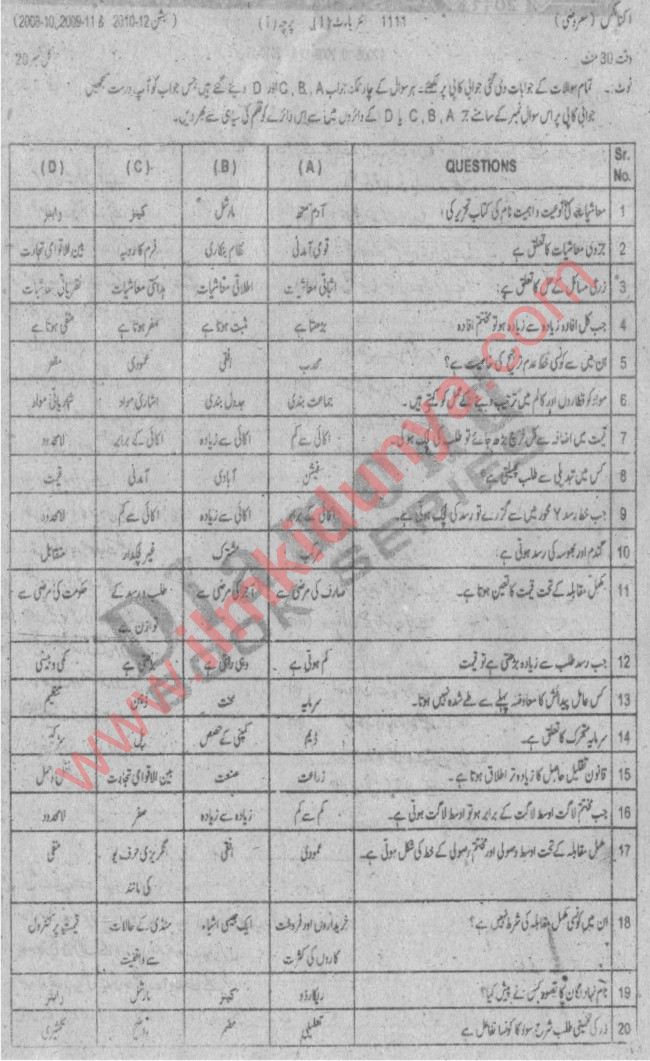 اکنامکس (معروضی) 1111 انٹر پارٹ (I) پرچہ (I) (سیشن 2010-12 & 2009-11, 2008-10)
وقت 30 منٹ کل نمبر 20
نوٹ۔ تمام سوالات کے جوابات دی گئی جوابی کاپی پر لکھئے۔ ہر سوال کے چار ممکنہ جواب A، B، C اور D دیئے گئے ہیں جس جواب کو آپ درست سمجھیں
جوابی کاپی پر اس سوال نمبر کے سامنے A، B، C یا D کے دائروں میں سے اس دائرے کو قلم کی سیاہی سے بھر دیں۔
Sr. No. QUESTIONS (A) (B) (C) (D)
1 معاشیات کی نوعیت و اہمیت نام کی کتاب تحریر کی؛ آدم سمتھ مارشل کینز رابنز
2 جزوی معاشیات کا تعلق ہے قومی آمدنی نظام بنکاری فرم کا رویہ بین الاقوامی تجارت
3 زرعی مسائل کے حل کا تعلق ہے؛ اثباتی معاشیات اطلاقی معاشیات معاشیات نظریاتی معاشیات
4 جب کل افادہ زیادہ سے زیادہ ہو تو مختتم افادہ بڑھتا ہے مثبت ہوتا ہے صفر ہوتا ہے منفی ہوتا ہے
5 ان میں سے کونسی خط عدم ترجیح کی خاصیت ہے؟ محدب افقی عمودی مقعر
6 مواد کو قطاروں اور کالم میں ترتیب دینے کے عمل کو کہتے ہیں۔ جماعت بندی جدول بندی اشاری مواد شماریاتی مواد
7 قیمت میں اضافہ سے کل خرچ بڑھ جائے تو طلب کی لچک ہوگی۔ اکائی سے کم اکائی سے زیادہ اکائی کے برابر لامحدود
8 کس میں تبدیلی سے طلب پھیلتی ہے؟ فیشن آبادی آمدنی قیمت
9 جب خط رسد Y محور میں سے گزرے تو رسد کی لچک ہوتی ہے۔ اکائی کے برابر اکائی سے زیادہ اکائی سے کم لامحدود
10 گندم اور بھوسہ کی رسد ہوتی ہے؛ مشترک غیر لچکدار متقابل
11 مکمل مقابلہ کے تحت قیمت کا تعین ہوتا ہے۔ صارف کی مرضی سے آجر کی مرضی سے طلب و رسد کے توازن سے حکومت کی مرضی سے
12 جب رسد طلب سے زیادہ بڑھتی ہے تو قیمت کم ہوتی ہے وہی رہتی ہے بڑھتی ہے کمی و بیشی
13 کس عامل پیدائش کا معاوضہ پہلے سے طے شدہ نہیں ہوتا۔ سرمایہ محنت زمین تنظیم
14 سرمایہ متحرک کا تعلق ہے۔ ڈیم کمپنی کے حصص پل سڑکیں
15 قانون تقلیل حاصل کا زیادہ تر اطلاق ہوتا ہے۔ زراعت صنعت بین الاقوامی تجارت نقل و حمل
16 جب مختتم لاگت اوسط لاگت کے برابر ہو تو اوسط لاگت ہوتی ہے۔ کم سے کم زیادہ سے زیادہ صفر لامحدود
17 مکمل مقابلہ کے تحت اوسط وصولی اور مختتم وصولی کے خط کی شکل ہوتی ہے۔ عمودی افقی انگریزی حرف یو کی مانند منفی
18 ان میں کونسی مکمل مقابلہ کی شرط نہیں ہے؟ خریداروں اور فروخت کاروں کی کثرت ایک جیسی اشیاء منڈی کے حالات سے واقفیت قیمتوں پر کنٹرول
19 نام نہاد لگان کا تصور کس نے پیش کیا؟ ریکارڈو کینز مارشل رابنز
20 زر کی تخمینی طلب شرح سود کا کونسا تفاعل ہے تقلیلی صفر تکثیری
www.ilmkidunya.com
Diamond
BOOK SERIES